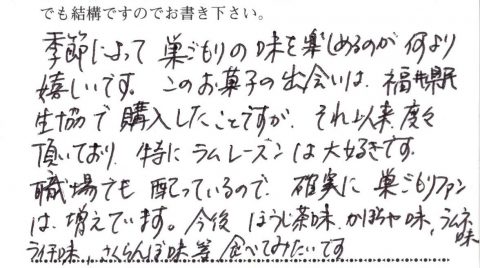 でも結構ですのでお書き下さい。
季節によって巣ごもりの味を楽しめるのが何より
嬉しいです。このお菓子の出会いは、福井県民
生協で購入したことですが、それ以来、度々
頂いており、特にラムレーズンは大好きです。
職場でも配っているので、確実に巣ごもりファン
は、増えています。今後ほうじ茶味、かぼちゃ味、ラムネ味
ライチ味、さくらんぼ味等食べてみたいです